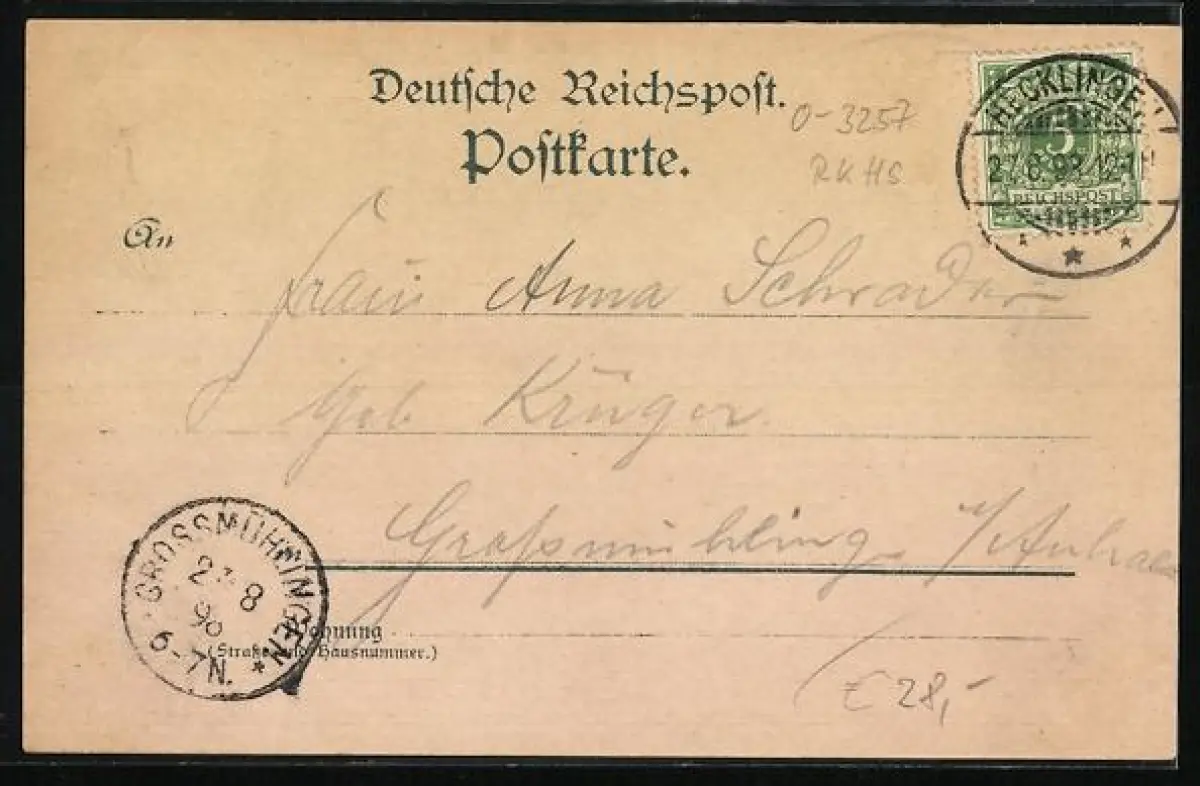 Deutsche Reichspost.
Postkarte.
O-3257
RKHS
HECKLINGEN
27.8.98.12-1N
5
REICHSPOST
An
Frau Anna Schrader
geb Krüger
Großmühling. i/Anhalt
GROSSMÜHLINGEN
27.8
98
6-7N.
Wohnung
(Straße und Hausnummer.)
€ 28,-